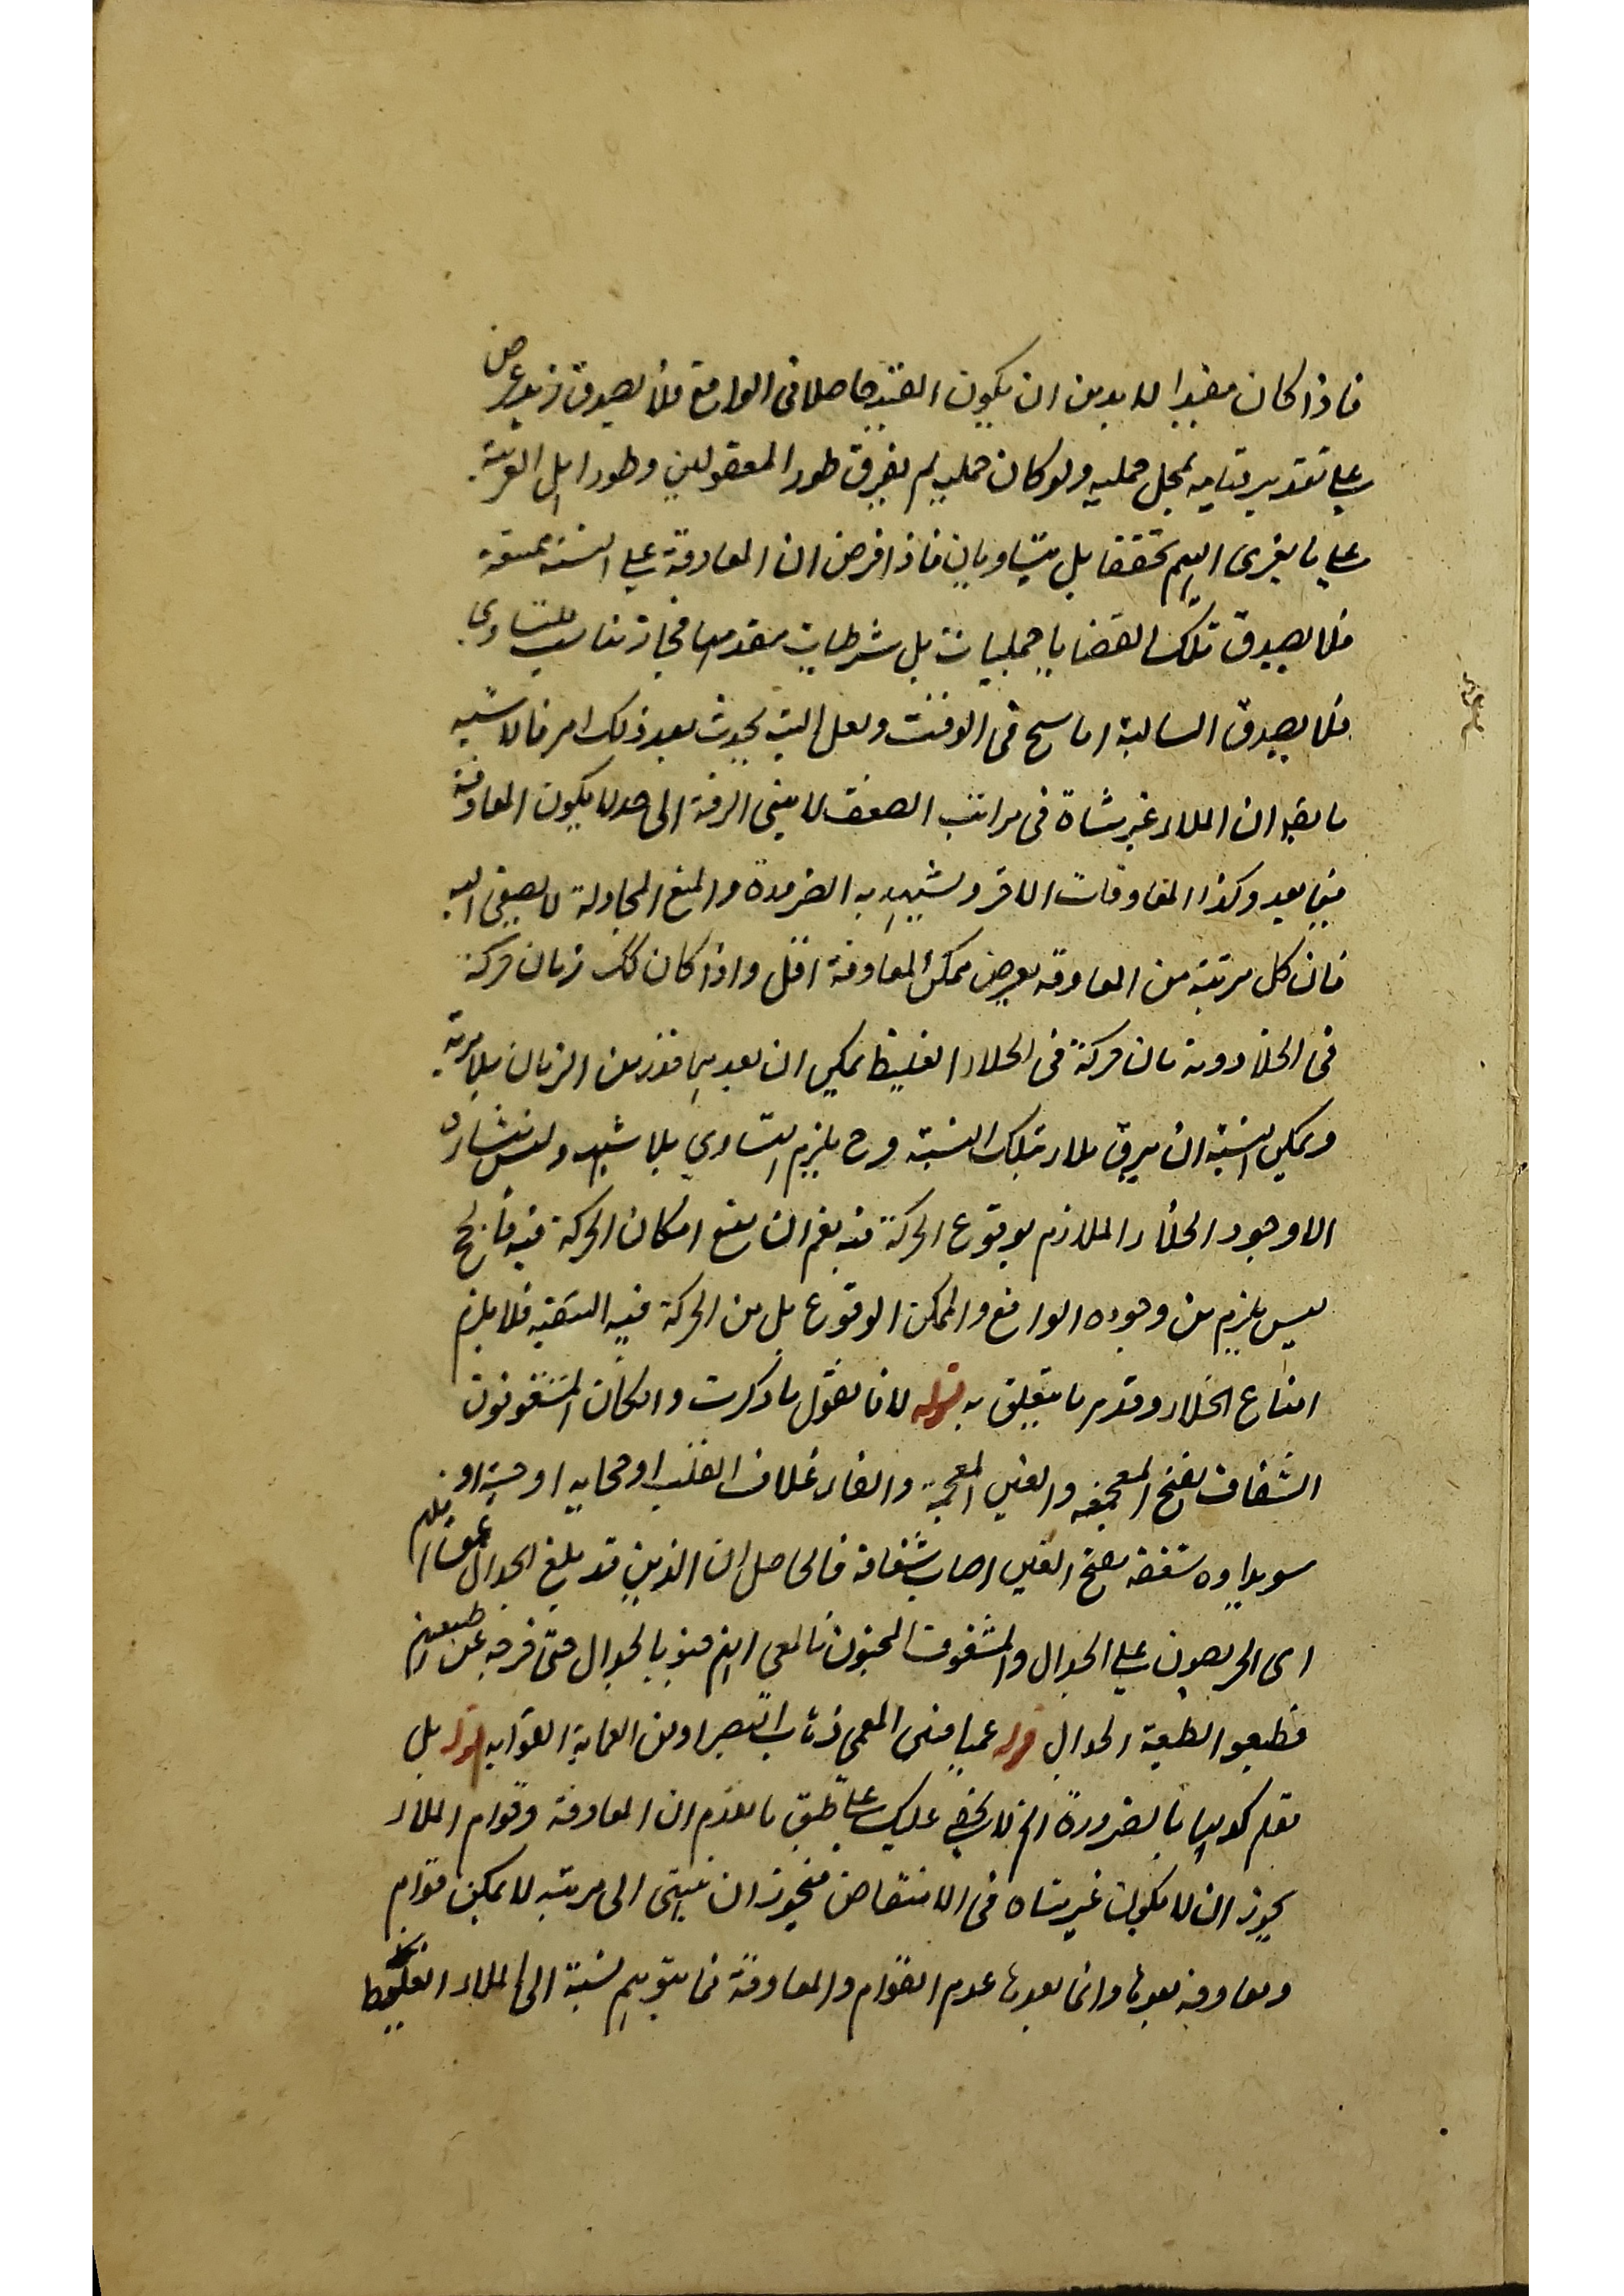 فاذا كان مقيدا لابد من ان يكون القيد حاصلا فى الواقع فلا يصدق زيد عرض
على تقدير قيامه بمحل حمليه ولو كان حمليه لم يفرق طور المعقولين وطور اهل العربية
على ما يغرى اليهم تحققا بل يتساويان فاذا فرض ان المعاوقة على النسبة
فلا يصدق تلك القضايا حمليات بل شرطيات مقدمها فجاز للتساوى
فلا يصدق السالبة فى الوقت ولعل الله يحدث بعد ذلك امرا فالاشبه
ما ان الملاء غير متناه فى مراتب الضعف لا ينتهى الرقة الى حد لا يكون المعاوقة
فيما بعد وكذا المعاوقات الاخر ويشهد به الضرورة والمنع المجادلة لا يصغى اليه
فان كل مرتبة من المعاوقة يعرض يمكن المعاوقة اقل واذا كان كك زمان حركة
فى الخلاء وزمان حركة فى الملاء الغليظ يمكن ان بعد من الزمان بلا مرية
ويمكن نسبته ان يرق ملاء بتلك النسبة وح يلزم التساوى بلا شبهة وليس منشاءه
الا وجود الخلاء الملازم بوقوع الحركة فيه نعم ان منع امكان الحركة فيه فالمح
ليس يلزم من وجوده الواقع والممكن الوقوع بل من الحركة فيه فلا يلزم
امتناع الخلاء وقد مر ما يتعلق به قوله لانا نقول ما ذكرت وانكان المشغوفون
الشغاف بفتح المعجمة والغين المعجمة والفاء غلاف القلب او حجابه او حبته او
سويداوه شغفه بفتح الغين اصاب شغافه فالحاصل ان الذين قد بلغ الجدال
اى الحريصون على الجدال والمشغوف المجنون فالمعنى انهم جنوا بالجدال حتى خرجوا عن طبيعتهم
فطبعوا الطبيعة الجدال قوله عميا فنى العمى ذهاب البصر او من العماية الغواية قوله بل
نعلم كونها بالضرورة الخ لا يخفى عليك على طبق ما تقدم ان المعاوقة وقوام الملاء
يجوز ان لا يكون غير متناه فى الانتقاص فيجوز ان ينتهى الى مرتبة لا يمكن قوام
ومعاوقة بعدها وانما بعدها عدم القوام والمعاوقة فما يتوهم نسبة الى الملاء الغليظ